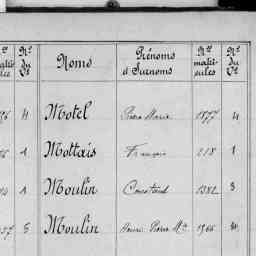 Nº du Vt Noms Prénoms et Surnoms Nos matri- cules Nº du Vt
4 Motel Pierre Marie 1877 4
1 Mottais François 218 1
1 Moulin Constant 1382 3
5 Moulin Henri Pierre Mie 1966